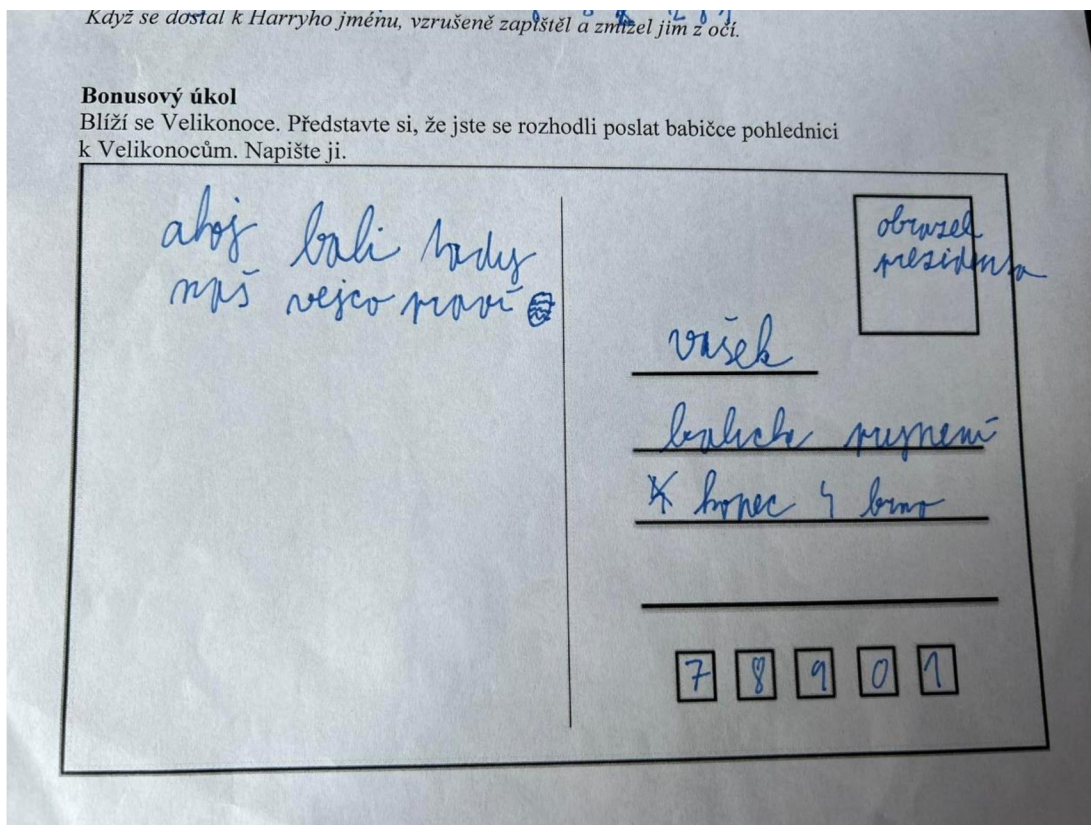 Když se dostal k Harryho jménu, vzrušeně zapištěl a zmizel jim z očí.
Bonusový úkol
Blíží se Velikonoce. Představte si, že jste se rozhodli poslat babičce pohlednici
k Velikonocům. Napište ji.
ahoj babi tady
máš vejco
obrazek
prezidenta
vašek
kopec 4 brno
7 8 9 0 1